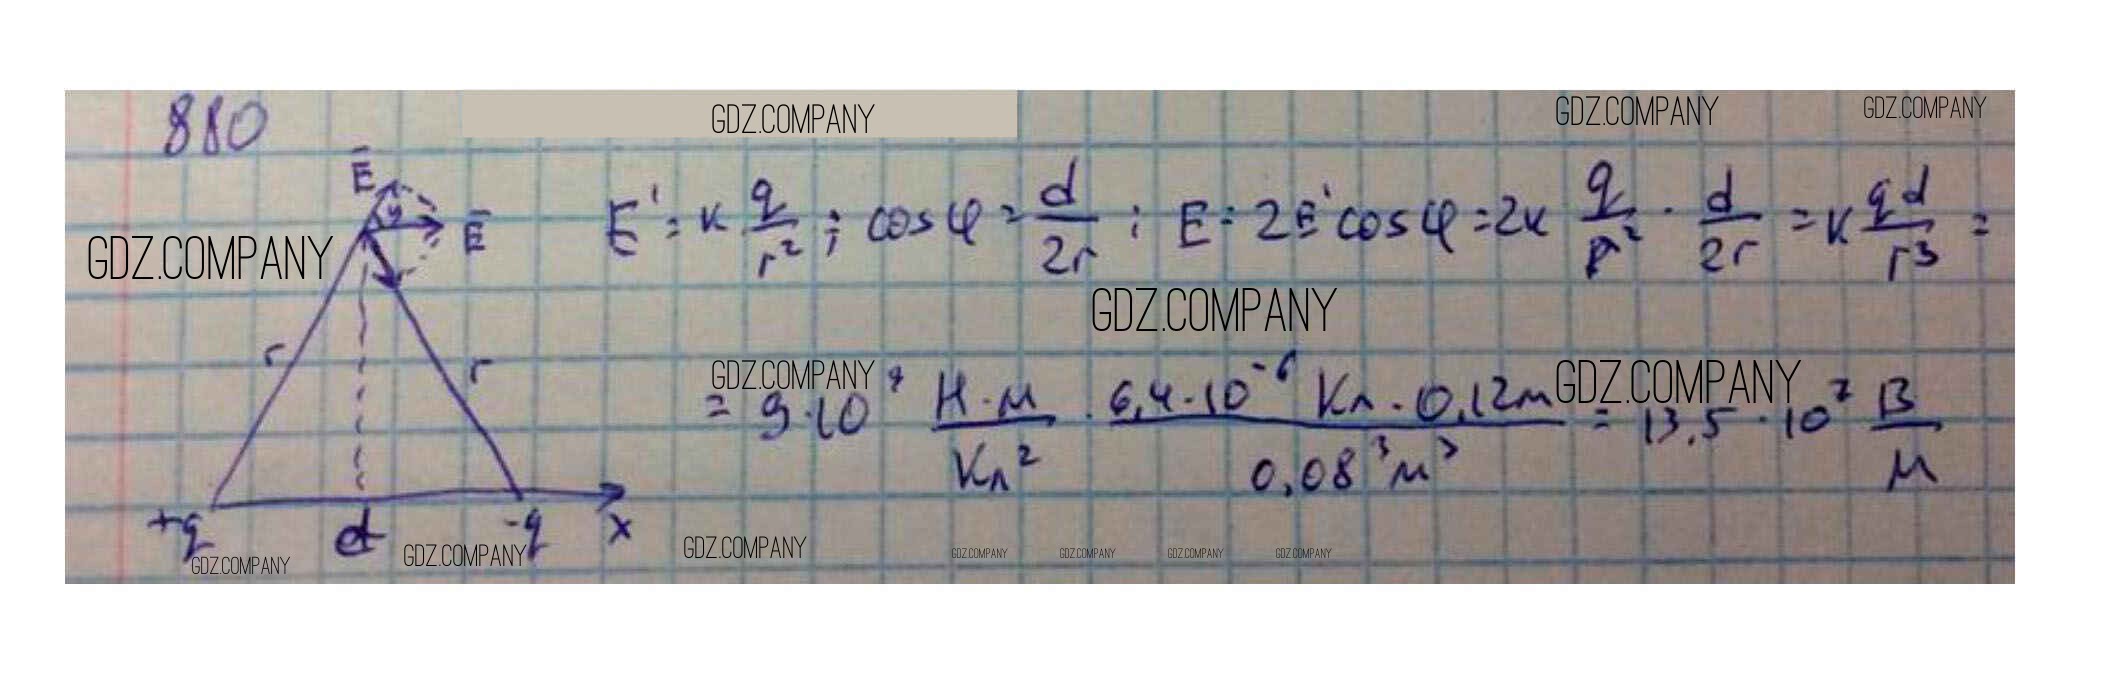 880
GDZ.COMPANY
GDZ.COMPANY
GDZ.COMPANY
E
φ
E
GDZ.COMPANY
E' = k q/r² ; cos φ = d/2r ; E = 2E' cos φ = 2k q/r² · d/2r = k qd/r³ =
GDZ.COMPANY
r
r
GDZ.COMPANY
GDZ.COMPANY
= 9·10⁹ Н·м/Кл² · 6,4·10⁻⁶ Кл · 0,12м/0,08³м³ = 13,5·10⁷ В/м
+q
d
-q
x
GDZ.COMPANY
GDZ.COMPANY
GDZ.COMPANY
GDZ.COMPANY
GDZ.COMPANY
GDZ.COMPANY
GDZ.COMPANY